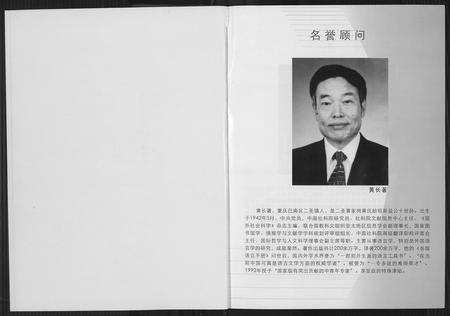 名誉顾问
黄长著
黄长著,重庆巴南区二圣镇人,是二圣黄家岗黄氏始祖新益公十世孙。出生
于1942年5月,中共党员,中国社科院研究员,社科院文献信息中心主任,《国
外社会科学》杂志主编,联合国教科文组织亚太地区信息学会副理事长,国家图
书馆学、情报学与文献学学科规划评审组组长,中国社科院高级翻译职称评委会
主任,国际哲学与人文科学理事会副主席等职。主要从事语言学,特别是外国语
言学的研究,成就斐然,著作出版共计200余万字,译著200余万字,他的《各国
语言手册》问世后,国内外学术界誉为“一部别开生面的语言工具书”,“在当
前中国可真是语言文学方面的权威学者”,被誉为“一专多能的难得英才”。
1992年授予“国家级有突出贡献的中青年专家”,享至政府特殊津贴。